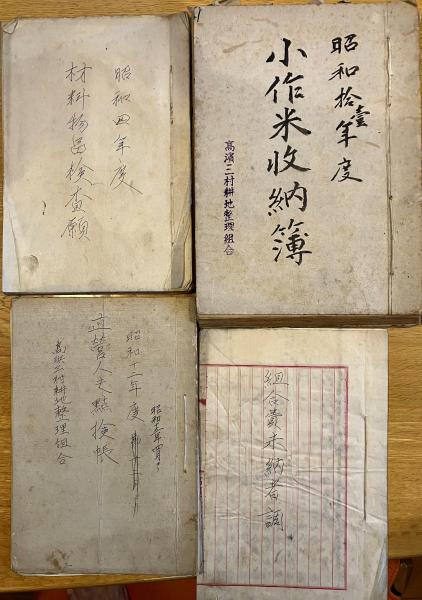 昭和四年度
材料物品検査願
昭和拾壹年度
小作米收納簿
高濱三村耕地整理組合
昭和十二年度
直營人夫點検帳
高浜三村耕地整理組合
組合費未納者調